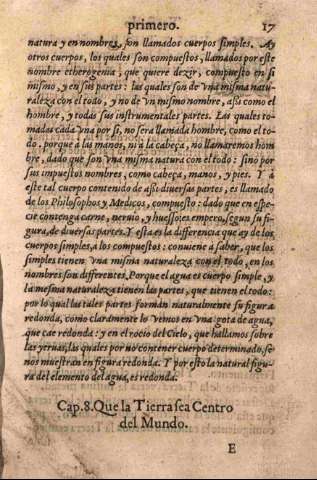 primero. 17
natura y en nombres, son llamados cuerpos simples. Ay
otros cuerpos, los quales son compuestos, llamados por este
nombre etherogenia, que quiere dezir, compuesto en si
mismo, y en sus partes: las quales son de vna misma natu-
raleza con el todo, y no de vn mismo nombre, assi como el
hombre, y todas sus instrumentales partes. Las quales to-
madas cada vna por si, no sera llamada hombre, como el to-
do, porque a las manos, ni a la cabeça, no llamaremos hom
bre, dado que son vna misma natura con el todo: sino por
sus impuestos nombres, como cabeça, manos, y pies. Y à
este tal cuerpo contenido de assi diuersas partes, es llamado
de los Philosophos y Medicos, compuesto: dado que en espe-
cie contenga carne, neruio, y huesso: es empero, segun su fi-
gura, de diuersas partes. Y esta es la differencia que ay de los
cuerpos simples, a los compuestos: conuiene à saber, que los
simples tienen vna misma naturaleza con el todo, en los
nombres son differentes. Porque el agua es cuerpo simple, y
la mesma naturaleza tienen las partes, que tiene el todo:
por lo qual las tales partes forman naturalmente su figura
redonda, como claramente lo vemos en vna gota de agua,
que cae redonda: y en el rocio del Cielo, que hallamos sobre
las yeruas, las quales por no contener cuerpo determinado, se
nos muestran en figura redonda. Y por esto la natural figu-
ra del elemento del agua, es redonda.
Cap. 8. Que la Tierra sea Centro
del Mundo.
E